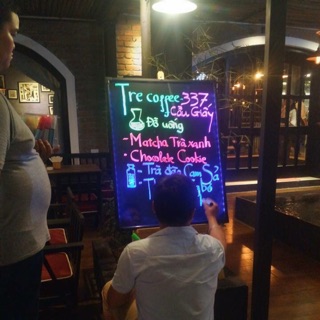 Tre coffee 337
Cầu Giấy
Đồ uống
- Matcha Trà xanh
- Chocolate Cookie
- Trà đào Cam Sả